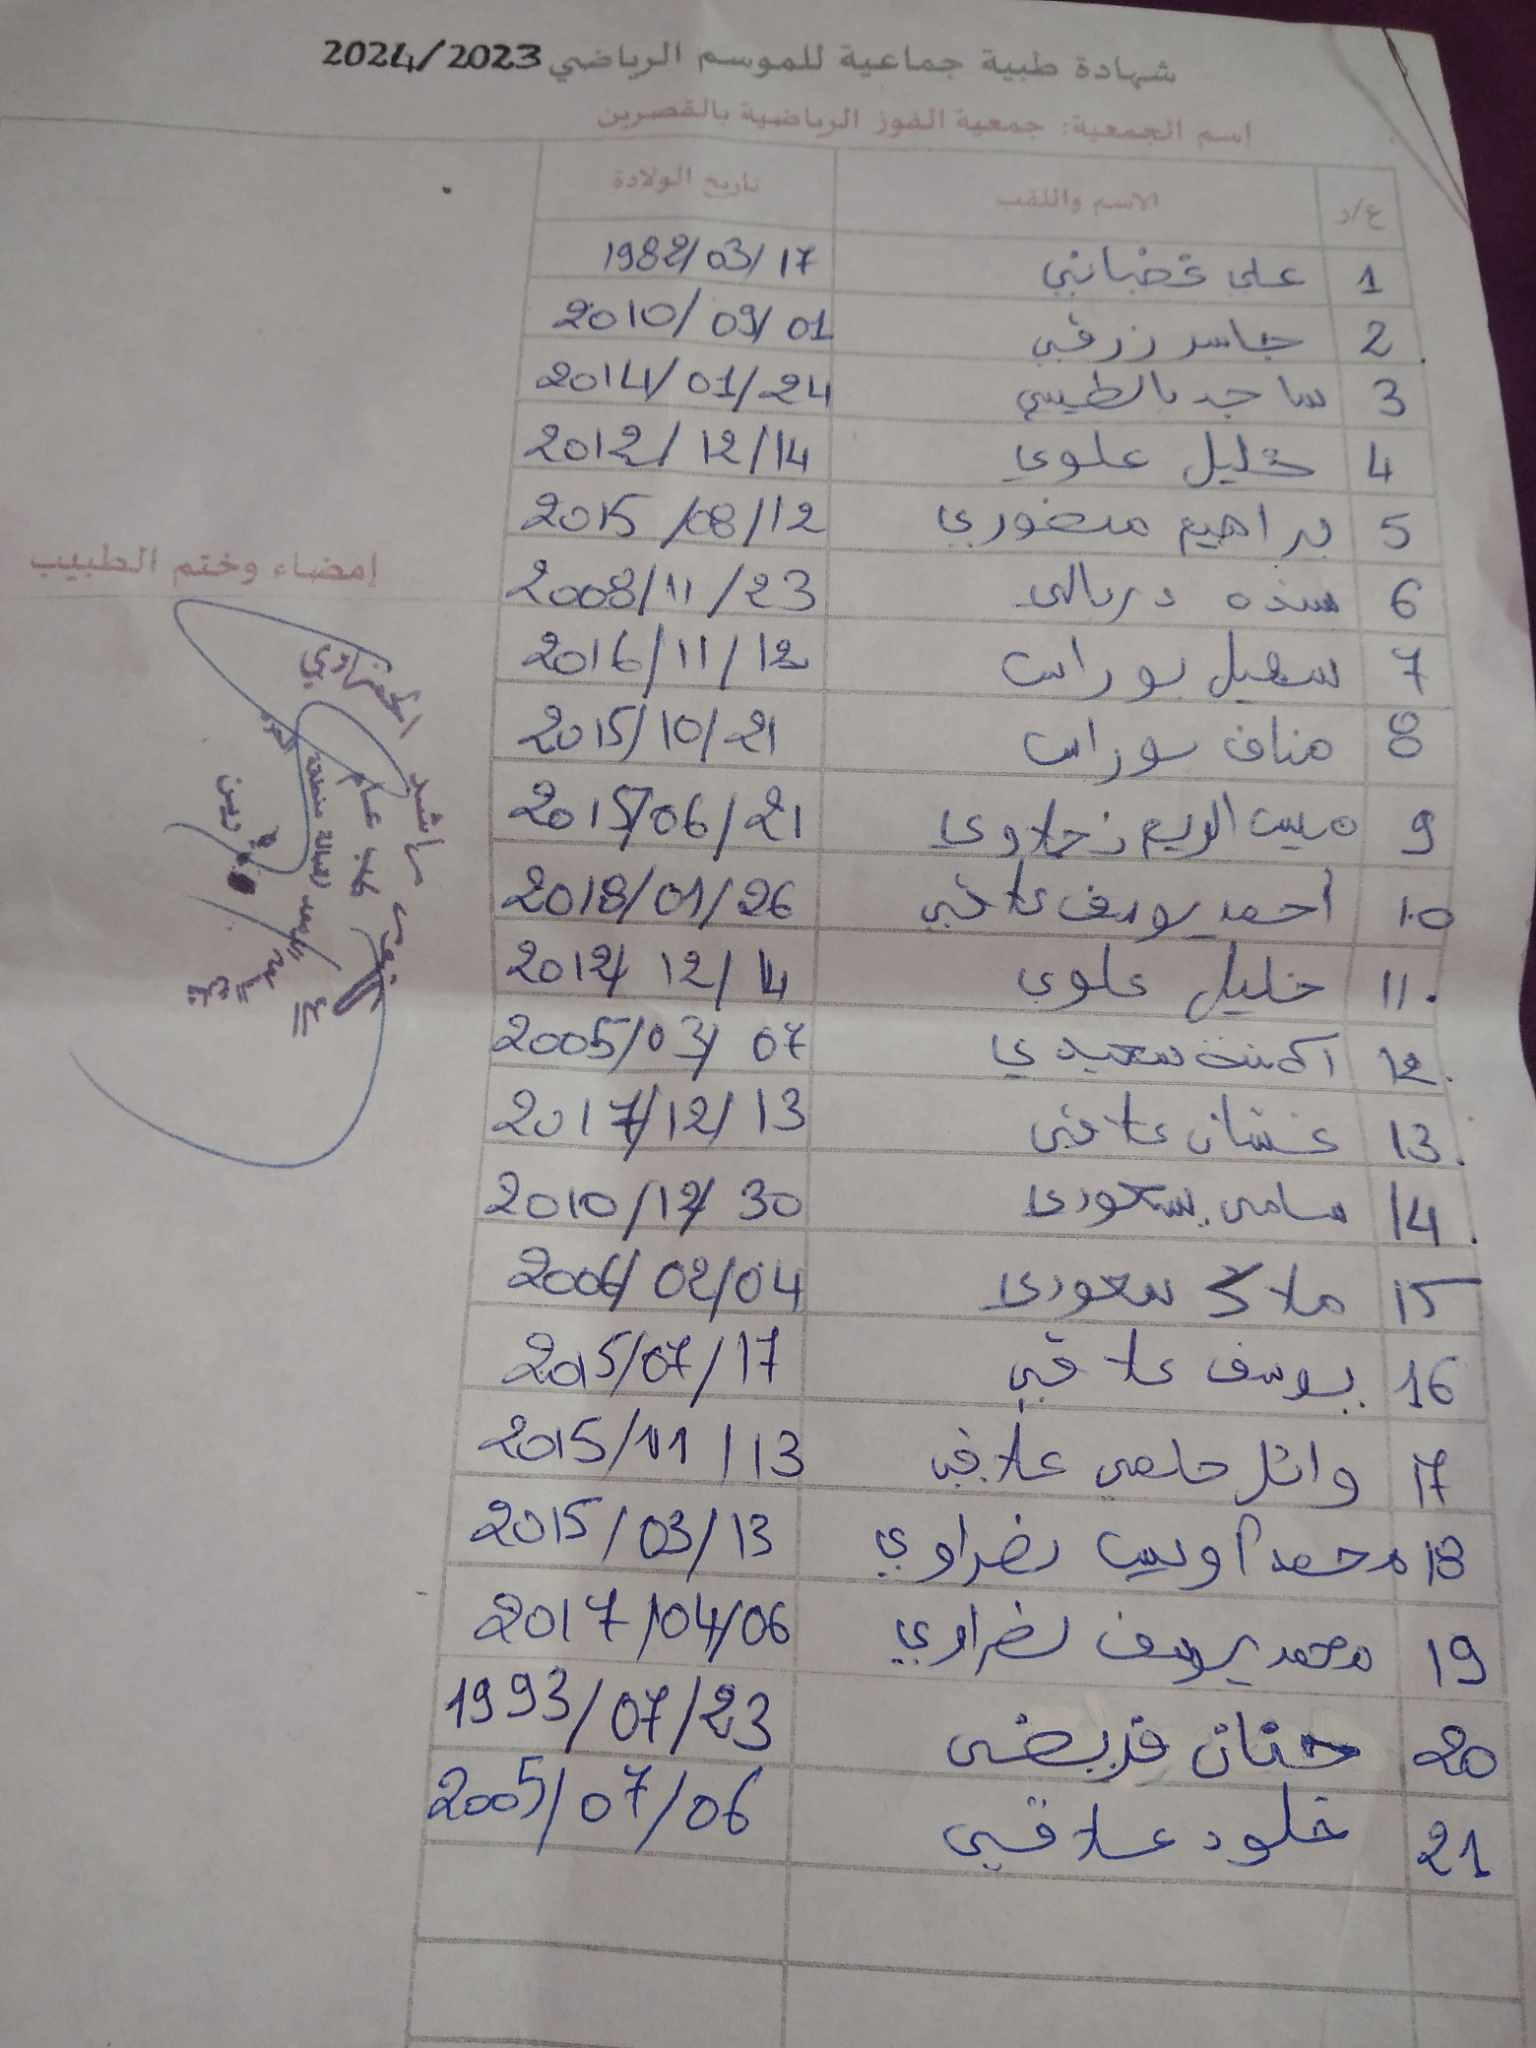 شهادة طبية جماعية للموسم الرياضي 2024/2023
اسم الجمعية: جمعية الفوز الرياضية بالقصرين
ع/ر الاسم واللقب تاريخ الولادة
1 علي قضباني 1982/03/17
2 جاسر زرقي 2010/09/01
3 ساجد بالطيبي 2014/01/24
4 خليل علوي 2012/12/14
5 براهيم منصوري 2015/08/12
6 دربالي 2008/11/23
7 سهيل بوراس 2016/11/12
8 مناف بوراس 2015/10/21
9 الريم 2015/06/21
10 أحمد يوسف علاقي 2018/01/26
11 خليل علوي 2012/12/14
12 آمنة سعيدي 2005/03/07
13 غسان علاقي 2017/12/13
14 سامي 2010/12/30
15 ملاك سعودي 2006/02/04
16 يوسف علاقي 2015/07/17
17 وائل حلمي علاقي 2015/11/13
18 محمد أويس نصراوي 2015/03/13
19 محمد يوسف نصراوي 2017/04/06
20 حنان قريضي 1993/07/23
21 خلود علاقي 2005/07/06
إمضاء وختم الطبيب